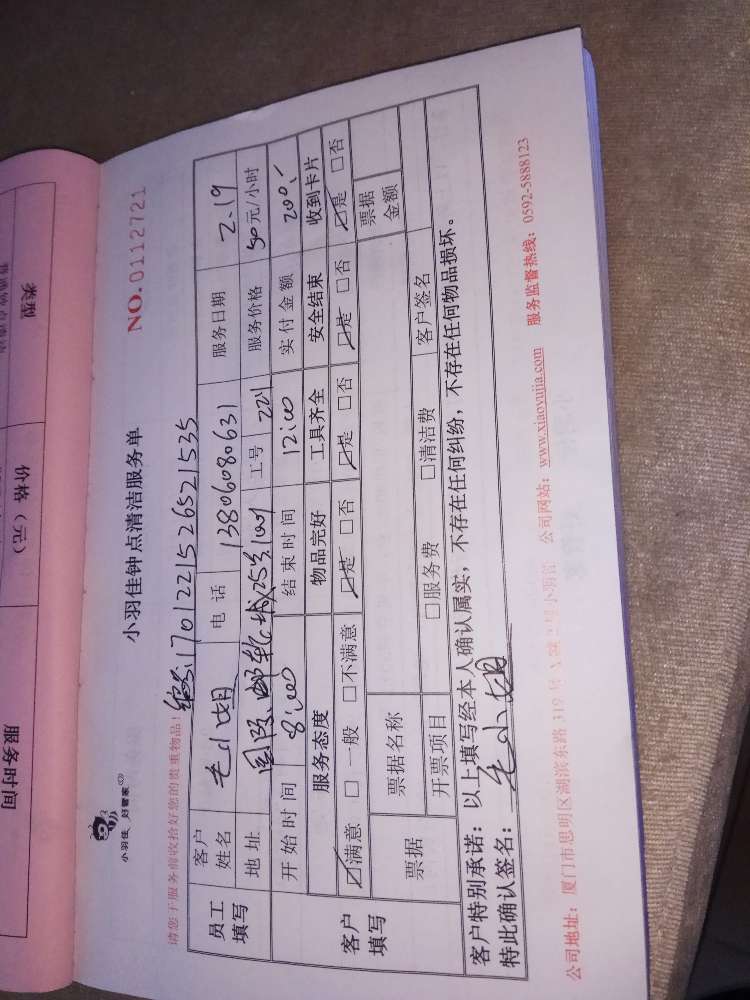 小羽佳 好管家
小羽佳钟点清洁服务单
NO.0112721
请您于服务前收拾好您的贵重物品!
编号:1701221526521535
员工填写
客户姓名 毛小姐 电话 13806080631 服务日期 2.19
地址 国际邮轮城 25号 1001 工号 221 服务价格 50元/小时
开始时间 8:00 结束时间 12:00 实付金额 200.
客户填写
服务态度 物品完好 工具齐全 安全结束 收到卡片
☑满意 □一般 □不满意 ☑是 □否 ☑是 □否 ☑是 □否 ☑是 □否
票据 票据名称 票据金额
开票项目 □服务费 □清洁费 客户签名
客户特别承诺:以上填写经本人确认属实,不存在任何纠纷,不存在任何物品损坏。
特此确认签名: 毛小姐
公司地址:厦门市思明区湖滨东路319号 公司网站:www.xiaoyujia.com 服务监督热线:0592-5888123
类型
价格(元)
服务时间